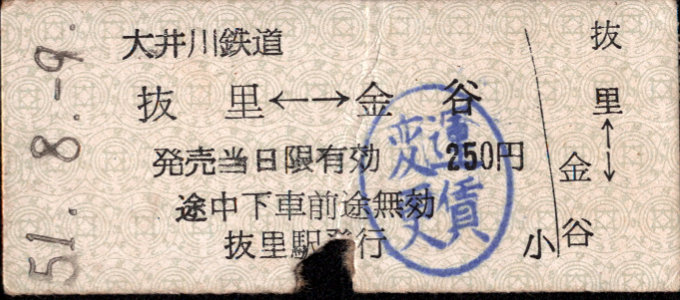 51.8.-9.
大井川鉄道
抜里←→金谷
発売当日限有効 250円
途中下車前途無効
抜里駅発行
運賃
変更
抜里←→金谷
小